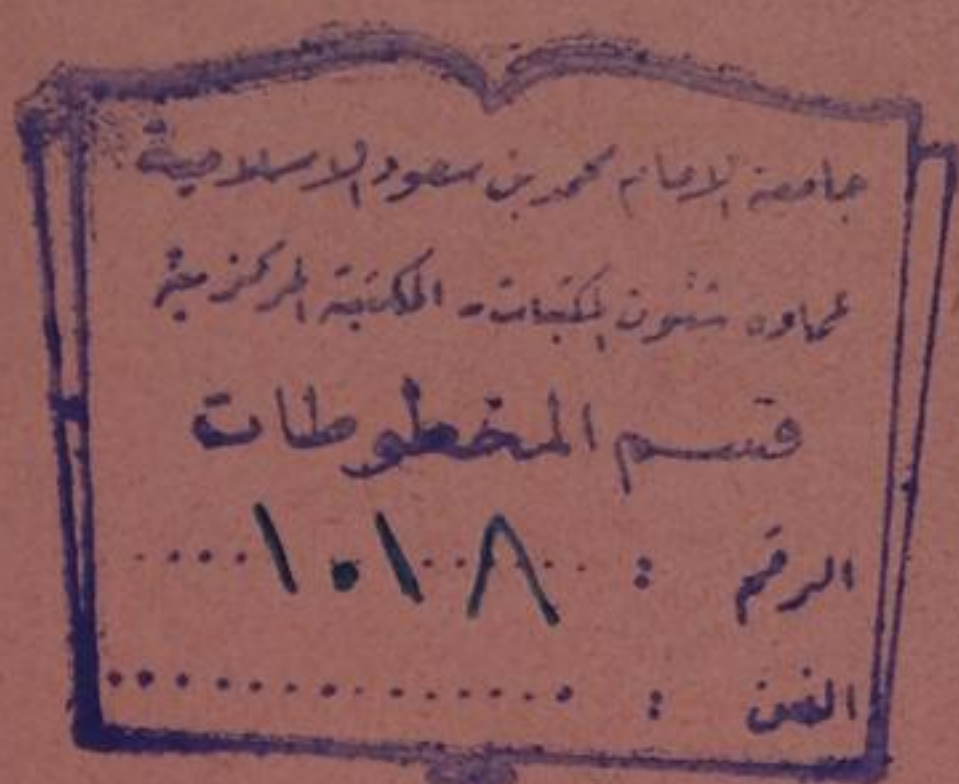 جامعة الامام محمد بن سعود الاسلامية
عمادة شئون المكتبات - المكتبة المركزية
قسم المخطوطات
الرقم : ١٠١٨
الفن :